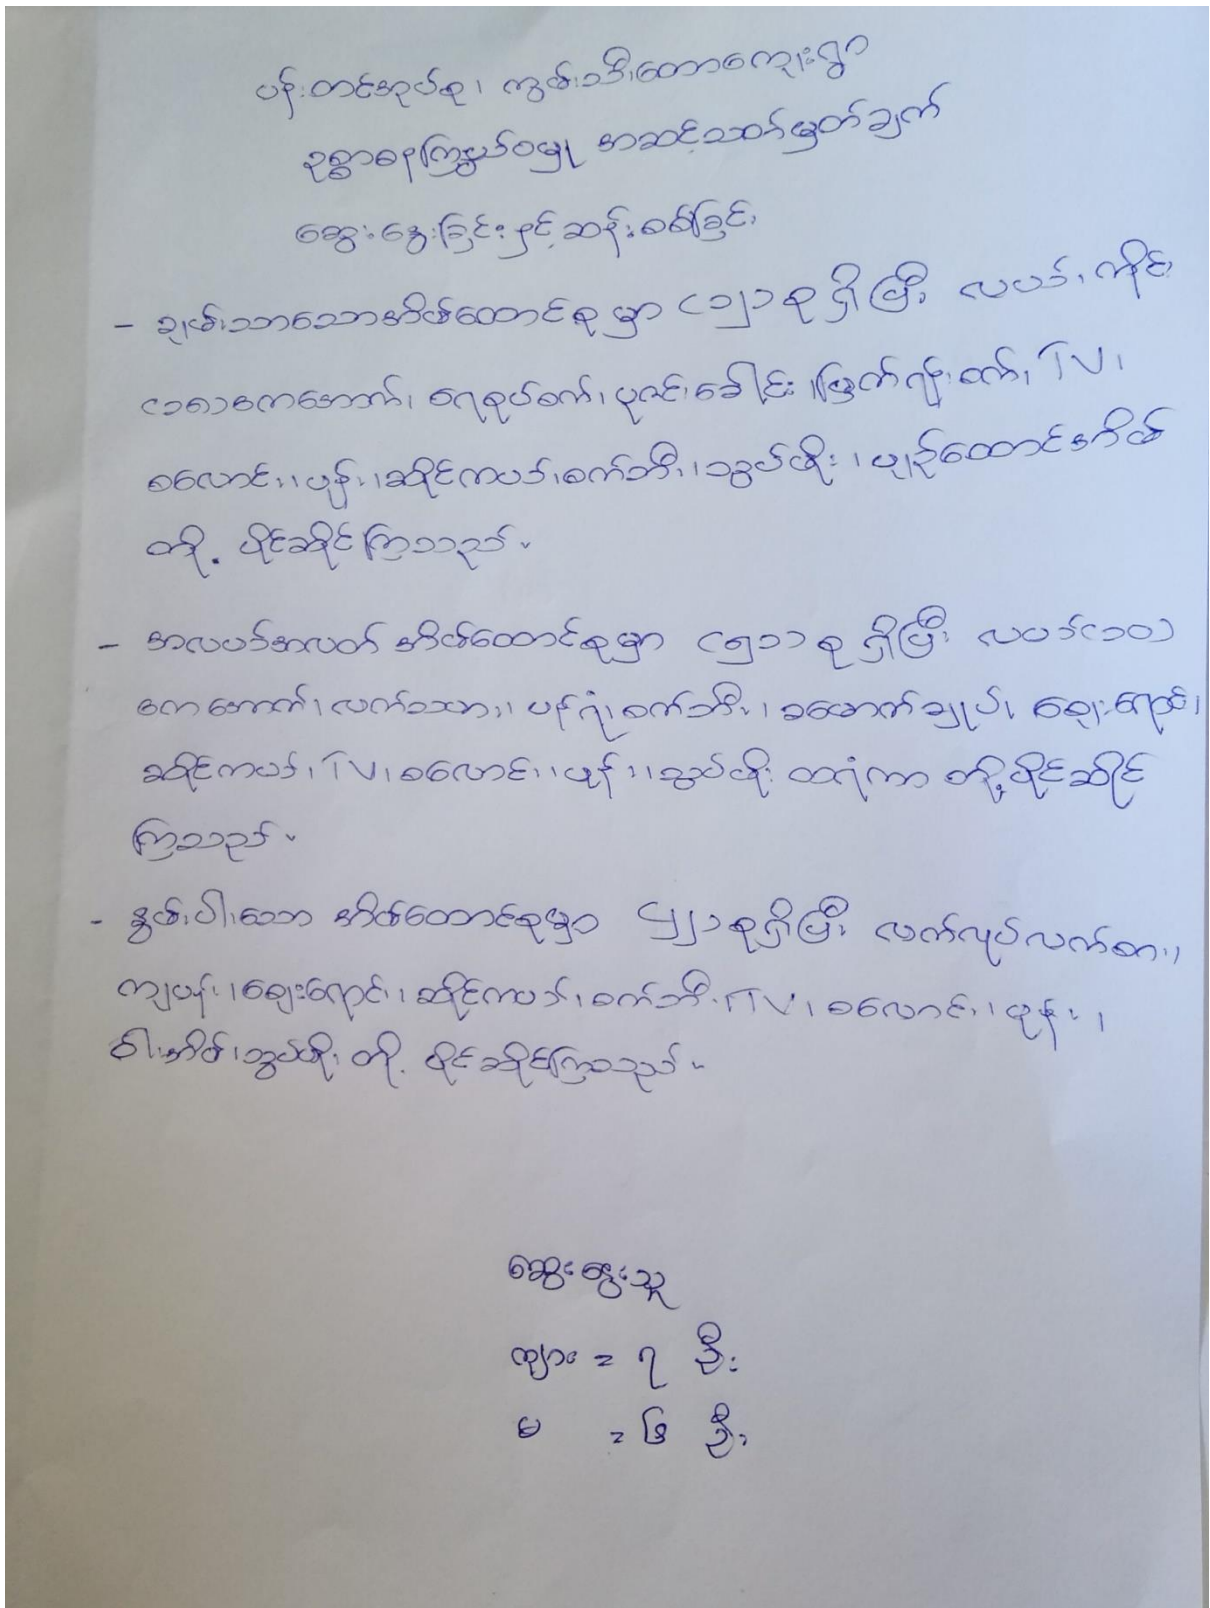 ပန်းတင်အုပ်စု၊ ကွမ်းသီးတောကျေးရွာ
ဥစ္စာဓနကြွယ်ဝမှု အဆင့်သတ်မှတ်ချက်
ဆွေးနွေးခြင်းနှင့်ဆန်းစစ်ခြင်း
- ချမ်းသာသောအိမ်ထောင်စုမှာ (၁၂)စုရှိပြီး လယ်၊ ကိုင်း
(၁၈)ဧကအောက်၊ ရေစုပ်စက်၊ ပုဇင်းခေါင်း၊ မြက်ရိတ်စက်၊ TV၊
စလောင်း၊ ဖုန်း၊ ဆိုင်ကယ်၊ စက်ဘီး၊ သွပ်မိုး၊ ပျဉ်ထောင်အိမ်
တို့ ပိုင်ဆိုင်ကြသည်။
- အလယ်အလတ် အိမ်ထောင်စုမှာ (၅၁)စုရှိပြီး လယ်(၁၀)
ဧကအောက်၊ လက်သမား၊ ပန်းရံ၊ စက်ဘီး၊ ခမောက်ချုပ်၊ ဈေးရောင်း၊
ဆိုင်ကယ်၊ TV၊ စလောင်း၊ ဖုန်း၊ သွပ်မိုး ထရံကာ တို့ပိုင်ဆိုင်
ကြသည်။
- နွမ်းပါးသော အိမ်ထောင်စုမှာ ၄၂၁စုရှိပြီး လက်လုပ်လက်စား၊
ကျပန်း၊ ဈေးရောင်း၊ ဆိုင်ကယ်၊ စက်ဘီး၊ TV၊ စလောင်း၊ ဖုန်း၊
ဝါးအိမ်၊ သွပ်မိုး တို့ ပိုင်ဆိုင်ကြသည်။
ဆွေးနွေးသူ
ကျား = ၇ ဦး
မ = ၆ ဦး